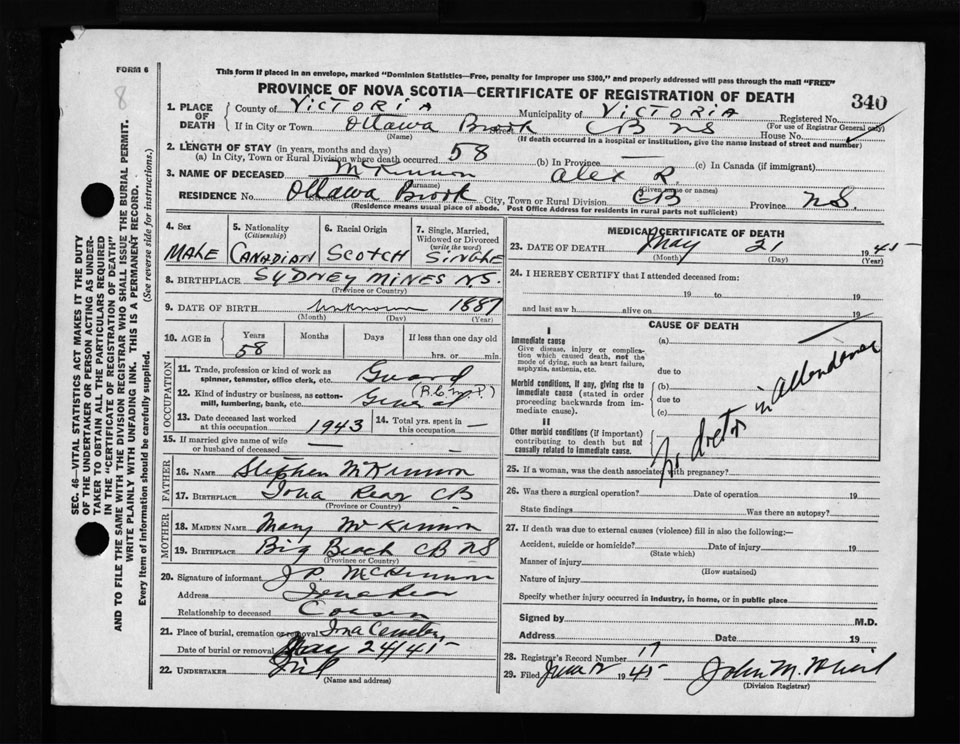 FORM 6
8
This form if placed in an envelope, marked "Dominion Statistics—Free, penalty for improper use $300," and properly addressed will pass through the mail "FREE"
PROVINCE OF NOVA SCOTIA—CERTIFICATE OF REGISTRATION OF DEATH
340
SEC. 46—VITAL STATISTICS ACT MAKES IT THE DUTY
OF THE UNDERTAKER OR PERSON ACTING AS UNDER-
TAKER TO OBTAIN ALL THE PARTICULARS REQUIRED
IN THE "CERTIFICATE OF REGISTRATION OF DEATH"
AND TO FILE THE SAME WITH THE DIVISION REGISTRAR WHO SHALL ISSUE THE BURIAL PERMIT.
WRITE PLAINLY WITH UNFADING INK. THIS IS A PERMANENT RECORD.
Every item of information should be carefully supplied. (See reverse side for instructions.)
1. PLACE OF DEATH County of VICTORIA Municipality of VICTORIA Registered No.
(For use of Registrar General only)
If in City or Town Ottawa Brook CB NS House No.
(Name) (If death occurred in a hospital or institution, give the name instead of street and number)
2. LENGTH OF STAY (in years, months and days)
(a) In City, Town or Rural Division where death occurred 58 (b) In Province — (c) In Canada (if immigrant)
3. NAME OF DECEASED McKinnon Alex R.
(Surname) (Given name or names)
RESIDENCE No. Ottawa Brook City, Town or Rural Division CB Province NS.
(Residence means usual place of abode. Post Office Address for residents in rural parts not sufficient)
4. Sex
MALE
5. Nationality (Citizenship)
CANADIAN
6. Racial Origin
SCOTCH
7. Single, Married, Widowed or Divorced (write the word)
SINGLE
8. BIRTHPLACE SYDNEY MINES NS.
(Province or Country)
9. DATE OF BIRTH unknown 1887
(Month) (Day) (Year)
10. AGE in Years Months Days If less than one day old
58 hrs. or min.
OCCUPATION
11. Trade, profession or kind of work as spinner, teamster, office clerk, etc. Guard
12. Kind of industry or business, as cotton-mill, lumbering, bank, etc. General (R.C.M.P.)
13. Date deceased last worked at this occupation 1943 14. Total yrs. spent in this occupation —
15. If married give name of wife or husband of deceased —
FATHER
16. NAME Stephen McKinnon
17. BIRTHPLACE Iona Rear CB
(Province or Country)
MOTHER
18. MAIDEN NAME Mary McKinnon
19. BIRTHPLACE Big Beach CB NS
(Province or Country)
20. Signature of informant J P. McKinnon
Address Iona Rear
Relationship to deceased Cousin
21. Place of burial, cremation or removal Iona
Date of burial or removal May 24/45
22. UNDERTAKER
(Name and address)
MEDICAL CERTIFICATE OF DEATH
23. DATE OF DEATH May 21 1945
(Month) (Day) (Year)
24. I HEREBY CERTIFY that I attended deceased from:
19 to 19
and last saw h alive on 19
CAUSE OF DEATH
I
Immediate cause
Give disease, injury or complication which caused death, not the mode of dying, such as heart failure, asphyxia, asthenia, etc.
(a)
due to
Morbid conditions, if any, giving rise to immediate cause (stated in order proceeding backwards from immediate cause).
(b)
due to
(c)
II
Other morbid conditions (if important) contributing to death but not causally related to immediate cause.
No doctor in attendance
25. If a woman, was the death associated with pregnancy?
26. Was there a surgical operation? Date of operation 19
State findings Was there an autopsy?
27. If death was due to external causes (violence) fill in also the following:—
Accident, suicide or homicide? Date of injury 19
(State which)
Manner of injury
(How sustained)
Nature of injury
Specify whether injury occurred in industry, in home, or in public place
Signed by M.D.
Address Date 19
28. Registrar's Record Number 17
29. Filed June 1945 John M.
(Division Registrar)